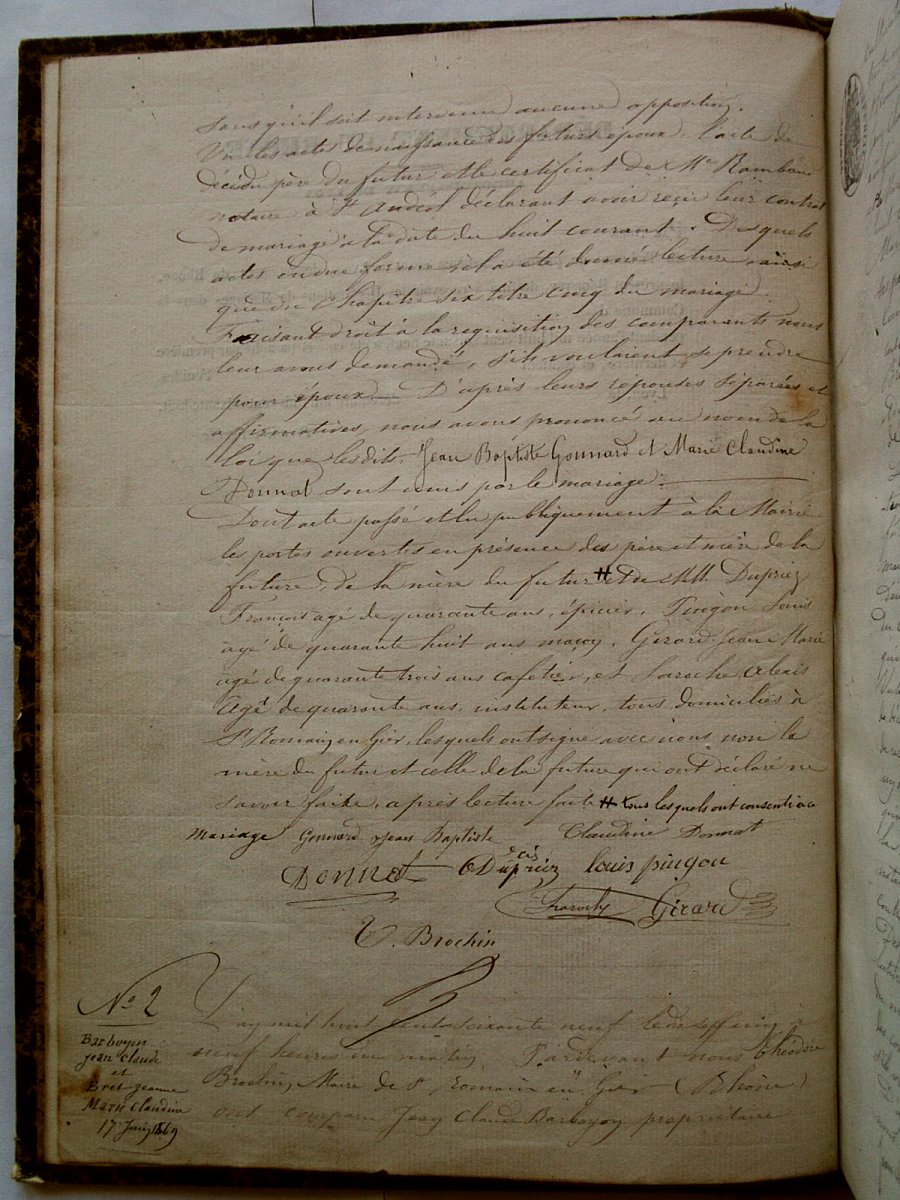 sans qu'il soit intervenu aucune opposition.
Vu les actes de naissance des futurs époux, l'acte de
décès du père du futur et le certificat de Me
notaire à St Andéol déclarant avoir reçu leur contrat
de mariage à la date du huit courant. Desquels
actes en due forme il a été donné lecture, ainsi
que du Chapitre six titre cinq du mariage.
Faisant droit à la requisition des comparants nous
leur avons demandé, s'ils voulaient se prendre
pour époux. D'après leurs réponses séparées et
affirmatives, nous avons prononcé au nom de la
loi que lesdits Jean Baptiste Gonnard et Marie Claudine
Donnat sont unis par le mariage.
Dont acte passé et lu publiquement à la Mairie
les portes ouvertes en présence des père et mère de la
future, de la mère du futur # et de MM. Dupriez
François agé de quarante ans, épicier, Pingon Louis
agé de quarante huit ans maçon, Girard Jean Marie
agé de quarante trois ans cafetier, et Laroche Alexis
agé de quarante ans, instituteur, tous domiciliés à
St Romain en Gier, lesquels ont signé avec nous non la
mère du futur et celle de la future qui ont déclaré ne
savoir faire, après lecture faite # tous lesquels ont consenti à ce
mariage Gonnard Jean Baptiste Claudine Donnat
Donnat Dupriez louis pingon
Laroche Girard
T. Brochin
No 2
Barboyon
Jean Claude
et
Bret Jeanne
Marie Claudine
17 Juin 1869
L'an mil huit cent soixante neuf le dix sept juin à
neuf heures du matin. Pardevant nous Théodore
Brochin, Maire de St Romain en Gier (Rhône)
ont comparu Jean Claude Barboyon propriétaire